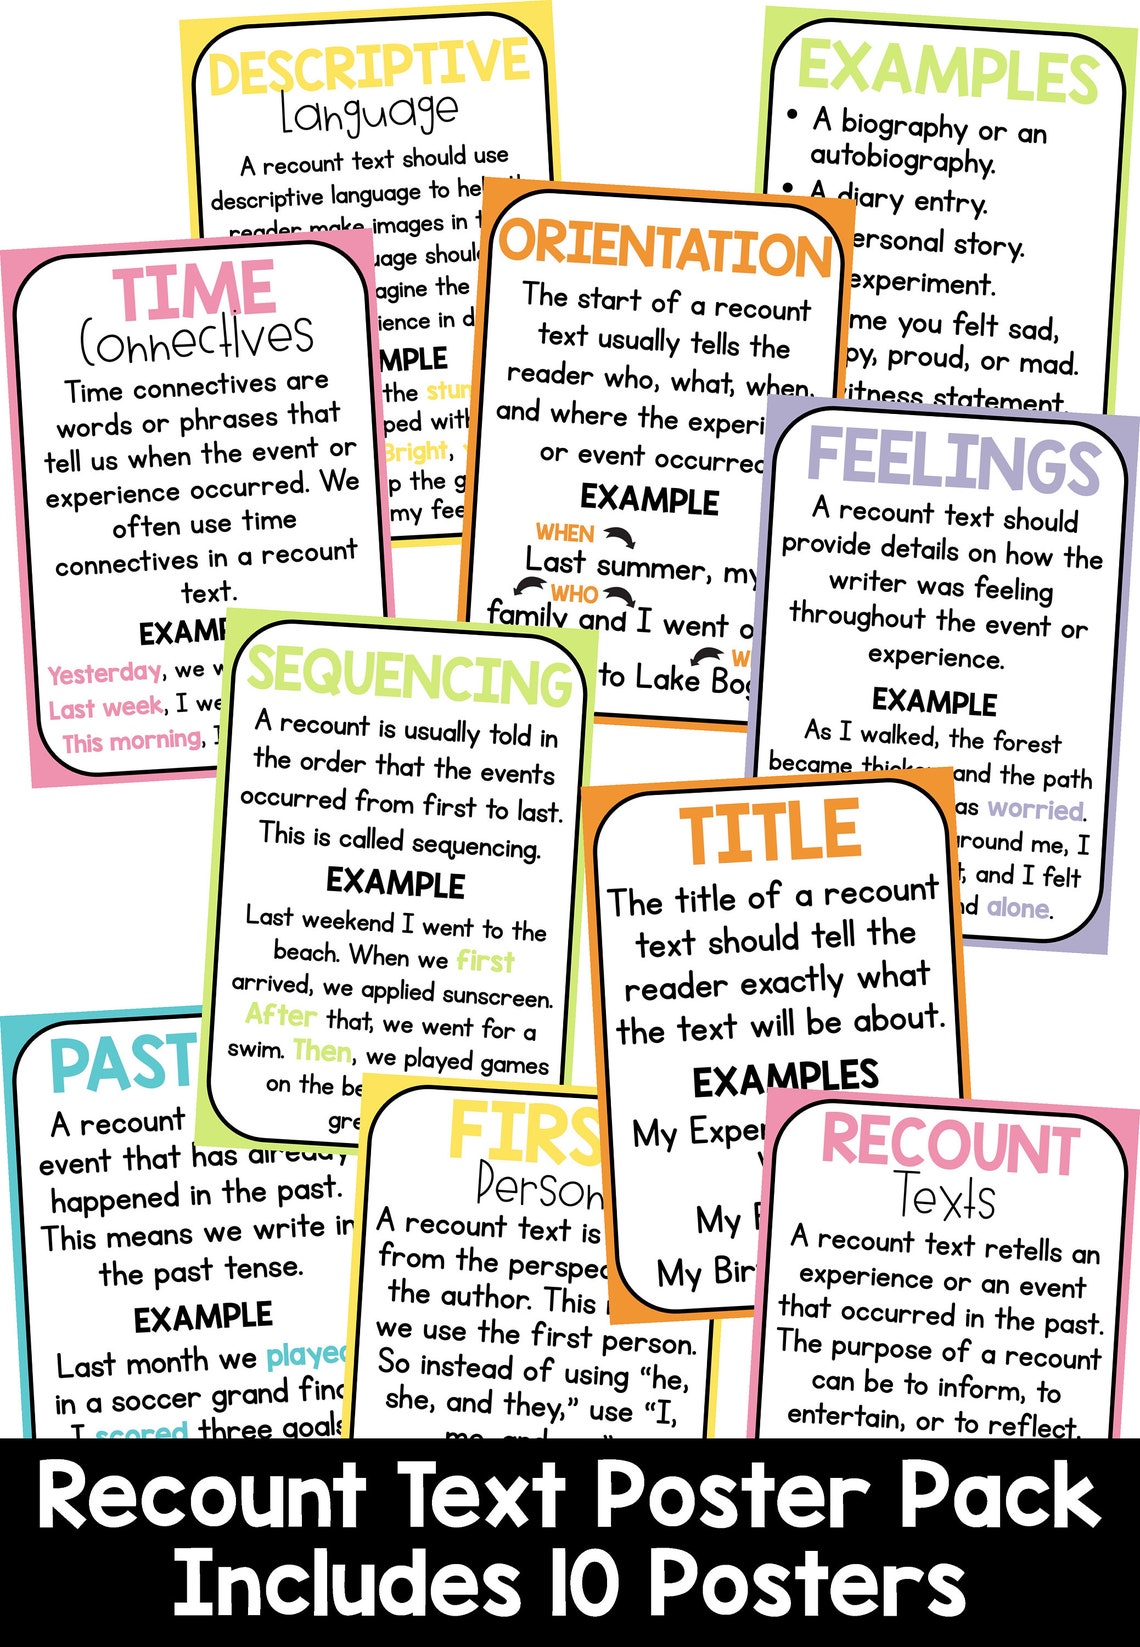 DESCRIPTIVE
Language
A recount text should use
descriptive language to
reader make images in
the
Bright,
the
my
EXAMPLES
• A biography or an
autobiography.
• A diary entry.
story.
experiment.
you felt sad,
proud, or mad.
statement.
TIME
Connectives
Time connectives are
words or phrases that
tell us when the event or
experience occurred. We
often use time
connectives in a recount
text.
Yesterday, we
Last week, I
This morning,
ORIENTATION
The start of a recount
text usually tells the
reader who, what, when,
and where the
or event
EXAMPLE
WHEN
Last summer, my
WHO
family and I went
to Lake
FEELINGS
A recount text should
provide details on how the
writer was feeling
throughout the event or
experience.
EXAMPLE
As I walked, the forest
became and the path
worried.
me, I
and I felt
alone.
SEQUENCING
A recount is usually told in
the order that the events
occurred from first to last.
This is called sequencing.
EXAMPLE
Last weekend I went to the
beach. When we first
arrived, we applied sunscreen.
After that, we went for a
swim. Then, we played games
on the
TITLE
The title of a recount
text should tell the
reader exactly what
the text will be about.
EXAMPLES
My
My
My
PAST
A recount
event that has already
happened in the past.
This means we write in
the past tense.
EXAMPLE
Last month we played
in a soccer grand
I scored three goals
FIRST
Person
A recount text is
from the
the author. This
we use the first person.
So instead of using “he,
she, and they,” use “I,
RECOUNT
Texts
A recount text retells an
experience or an event
that occurred in the past.
The purpose of a recount
can be to inform, to
entertain, or to reflect.
Recount Text Poster Pack
Includes 10 Posters